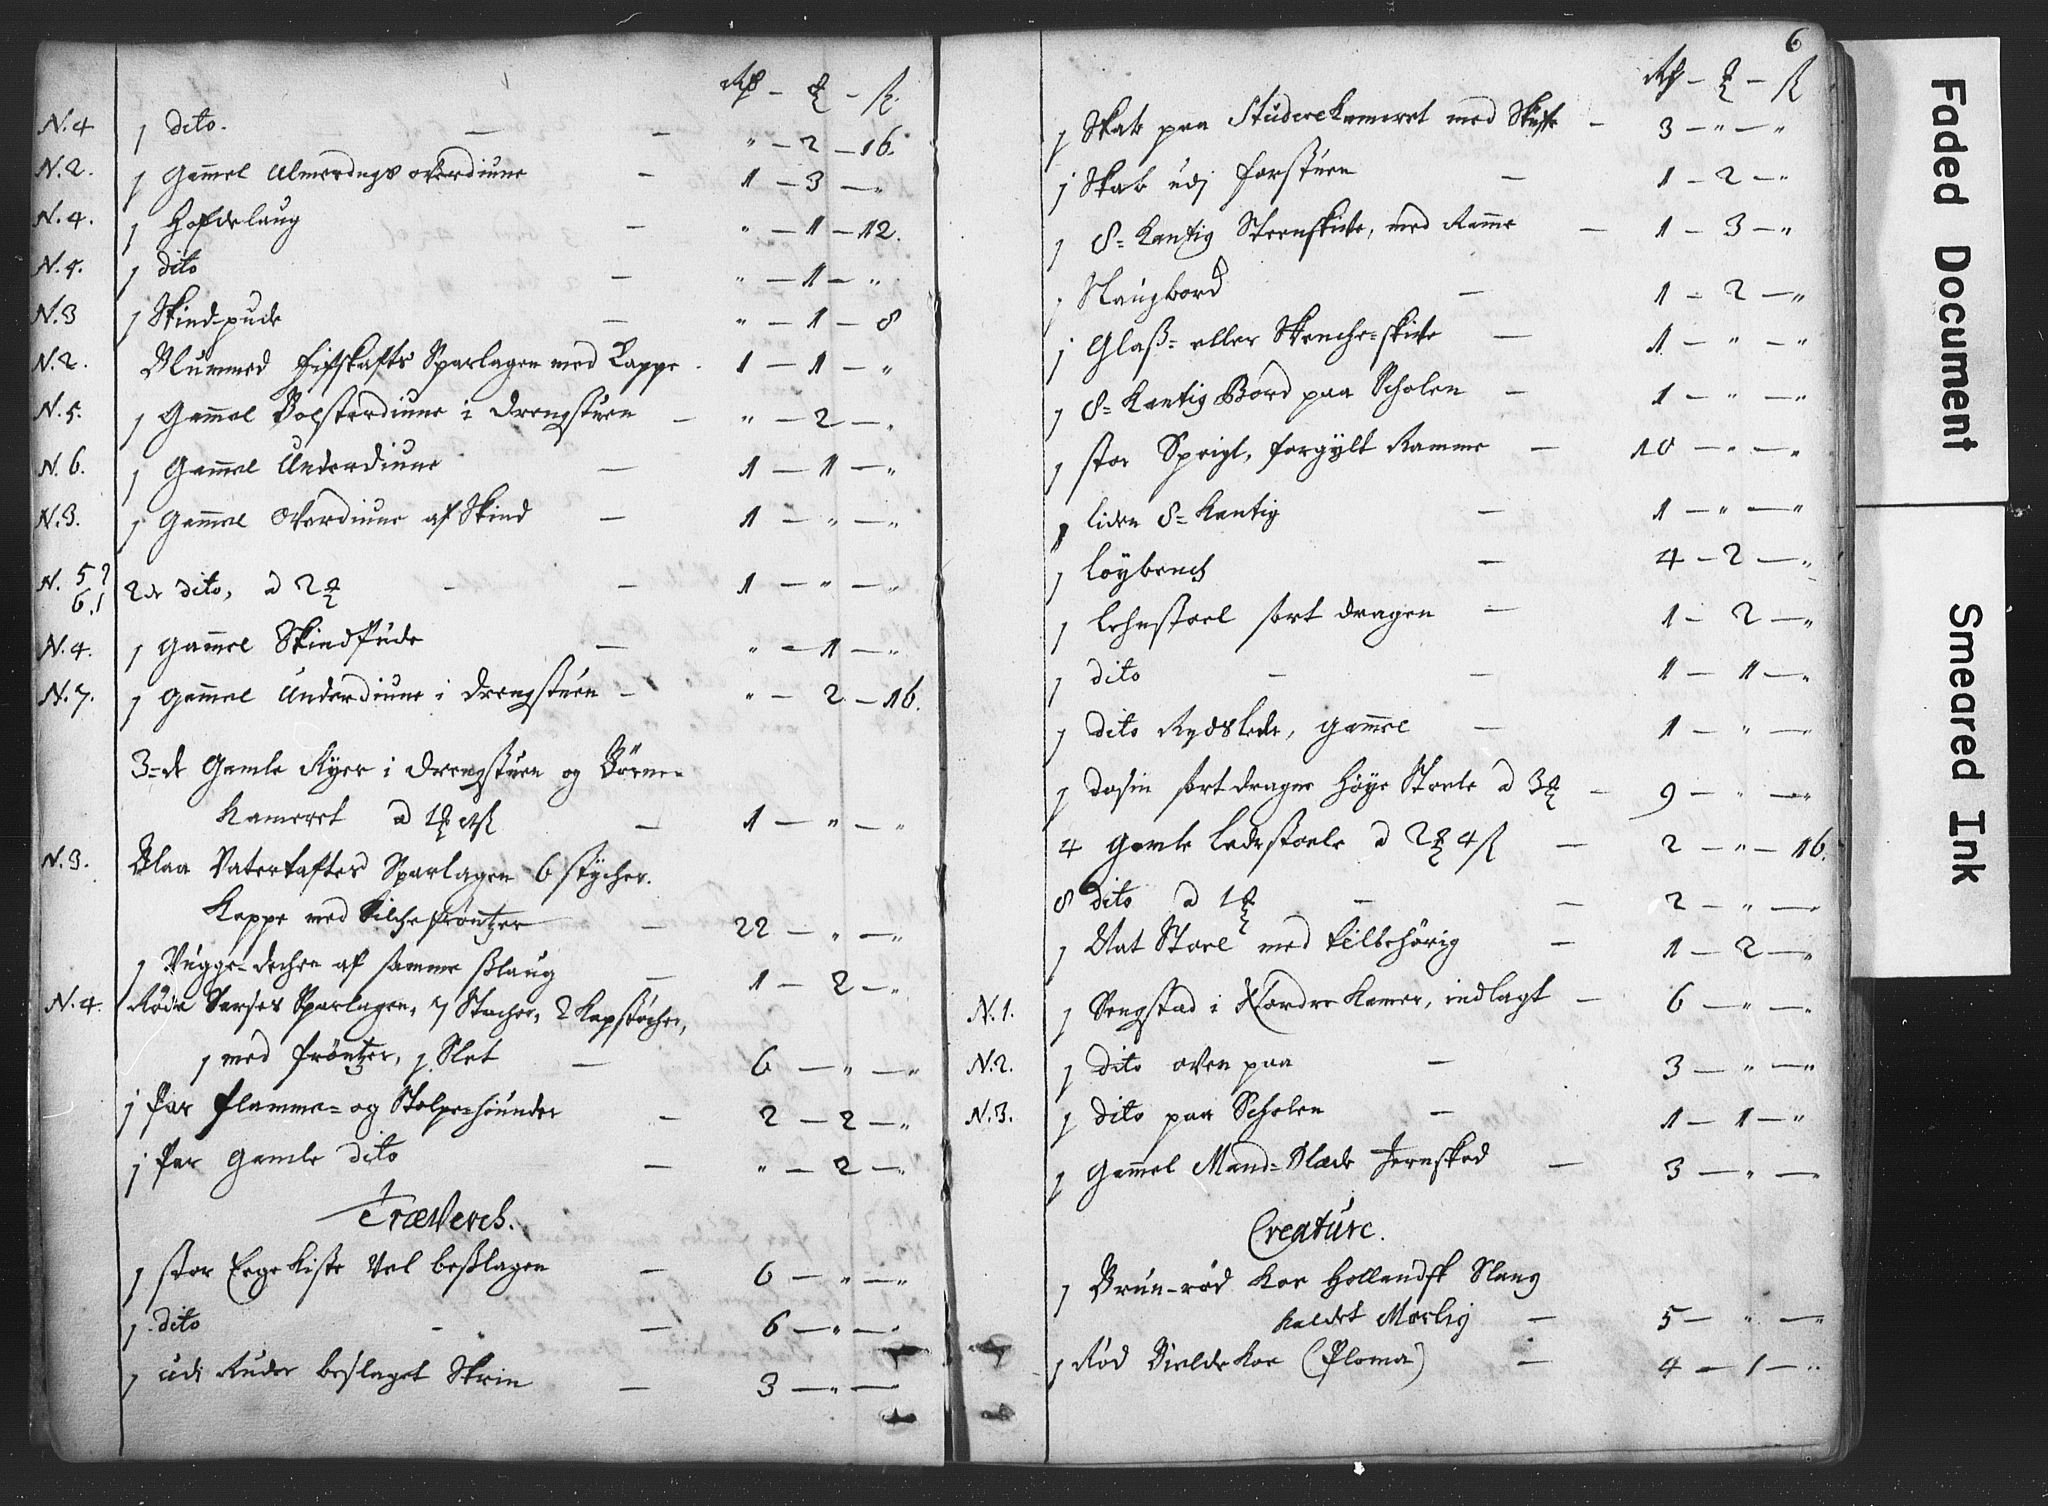 Rd – ℥ – ß.
N. 4 1 dito. — — " – 2 – 16.
N. 2. 1 Gammel Ulmerdugs overdiune — 1 – 3 – "
N. 4. 1 Hofdelaug — " – 1 – 12.
N. 5. 1 dito — " – 1 – "
N. 3 1 Skindpude — " – 1 – 8
N. 2. Blummed fifskafts Sparlagen med Kappe. 1 – 1 – "
N. 5. 1 Gammel Bolsterdiune i Drengstuen — " – 2 – "
N. 6. 1 Gammel Underdiune — 1 – 1 – "
N. 3. 1 Gammel Overdiune af Skind — 1 – " – "
N. 5 6. 2de dito, a 2 ℥ — 1 – " – "
N. 4. 1 gammel Skindpude — " – 1 – "
N. 7. 1 gammel Underdiune i Drengstuen — " – 2 – 16.
3=de Gamle Ryer i Drengstuen og Börne=
Kameret a 1 ℥ 8 ß — 1 – " – "
N. 3. Blaa Vatertaftes Sparlagen 6 stÿcher.
Kappe med Silche frøntzer — 22 – " – "
1 Vugge-dechen af samme sslaug — 1 – 2 – "
N. 4. Røde Sarses Sparlagen, 7 Stÿcher, 2 Kapstÿcher,
1 med frøntzer, 1 Slet — 6 – " – "
1 Par flamme= og Stolpe=hiunder — 2 – 2 – "
1 Par Gamle dito — " – 2 – "
TræVerch.
1 stor Eege Kiste Vel besslagen — 6 – " – "
1 dito — — 6 – " – "
1 udi Ruder beslaget Skrin — 3 – " – "
6
Rd – ℥ – ß
1 Skab paa Studerekameret med — 3 – " – "
1 Skab udj forstuen — 1 – 2 – "
1 8=Kantig Steenskive, med Ramme — 1 – 3 – "
1 Slaugbord — 1 – 2 – "
1 Glaß= eller Skenche=skive — 1 – " – "
1 8=Kantig Bord paa Scholen — 1 – " – "
1 stor Speigl, forgÿlt Ramme — 10 – " – "
1 liden 8=Kantig — 1 – " – "
1 Löybench — 4 – 2 – "
1 Lehnstoel sort dragen — 1 – 2 – "
1 dito — — 1 – 1 – "
1 dito Rydslede, gammel — 1 – " – "
1 Dosin sort dragne Høye Stoele a 3 ℥ — 9 – " – "
4 Gamle Ledestoele a 2 ℥ 4 ß — 2 – " – 16.
8 dito a 1 ℥ — — 2 – " – "
1 Nat Stoel med tilbehörig — 1 – 2 – "
N. 1. 1 Sengstad i Nordre Kamer, indlagt — 6 – " – "
N. 2. 1 dito oven paa — 3 – " – "
N. 3. 1 dito paa Scholen — 1 – 1 – "
1 Gammel Mand=Slæde Jernskod — 3 – " – "
Creature.
1 Brun-rød Koe Hollandsk Slaug
Kaldet Morlig — 5 – " – "
1 Rød Bielde Koe (Ploma) — 4 – 1 – "
Faded Document
Smeared Ink